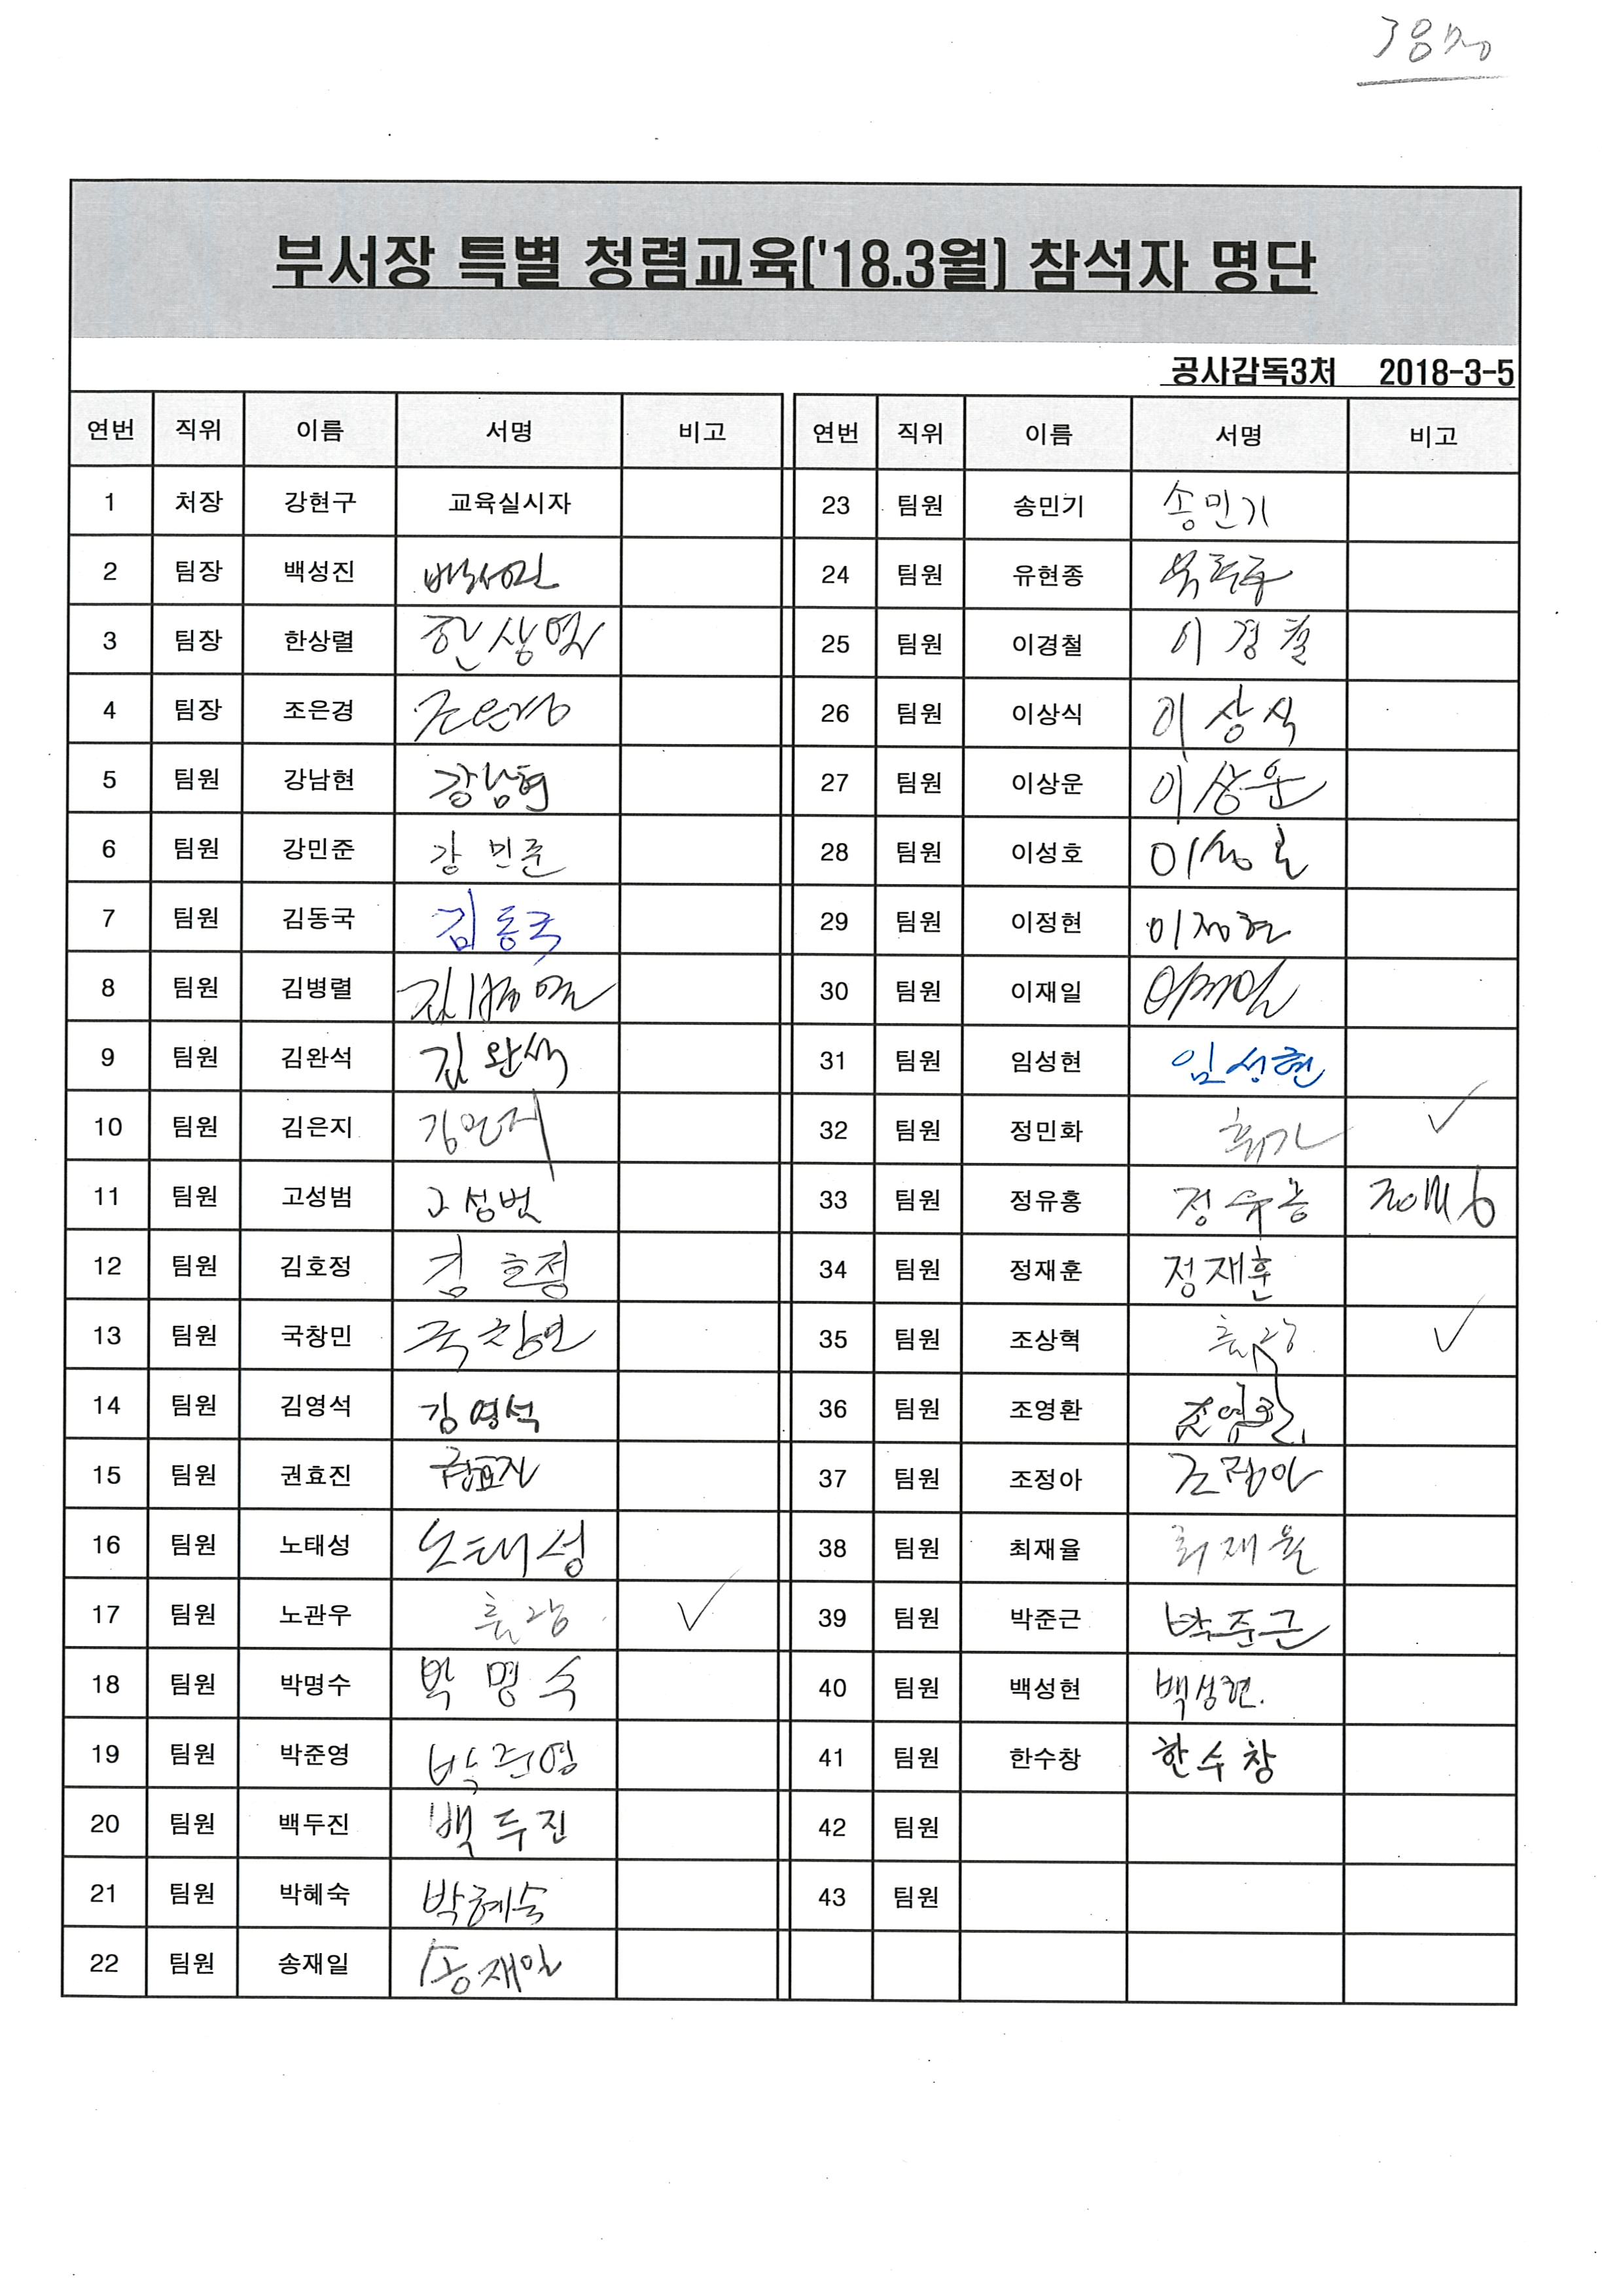 38명
부서장 특별 청렴교육('18.3월) 참석자 명단
공사감독3처 2018-3-5
연번 직위 이름 서명 비고 연번 직위 이름 서명 비고
1 처장 강현구 교육실시자 23 팀원 송민기 송민기
2 팀장 백성진 백성진 24 팀원 유현종
3 팀장 한상렬 한상렬 25 팀원 이경철 이경철
4 팀장 조은경 조은경 26 팀원 이상식 이상식
5 팀원 강남현 강남현 27 팀원 이상운 이상운
6 팀원 강민준 강민준 28 팀원 이성호 이성호
7 팀원 김동국 김동국 29 팀원 이정현 이정현
8 팀원 김병렬 김병렬 30 팀원 이재일 이재일
9 팀원 김완석 김완석 31 팀원 임성현 임성현
10 팀원 김은지 김은지 32 팀원 정민화 휴가 ✓
11 팀원 고성범 고성범 33 팀원 정유홍 정유홍
12 팀원 김호정 김호정 34 팀원 정재훈 정재훈
13 팀원 국창민 국창민 35 팀원 조상혁 출장 ✓
14 팀원 김영석 김영석 36 팀원 조영환 조영환
15 팀원 권효진 권효진 37 팀원 조정아 조정아
16 팀원 노태성 노태성 38 팀원 최재율 최재율
17 팀원 노관우 출장 ✓ 39 팀원 박준근 박준근
18 팀원 박명수 박명수 40 팀원 백성현 백성현.
19 팀원 박준영 박준영 41 팀원 한수창 한수창
20 팀원 백두진 백두진 42 팀원
21 팀원 박혜숙 박혜숙 43 팀원
22 팀원 송재일 송재일